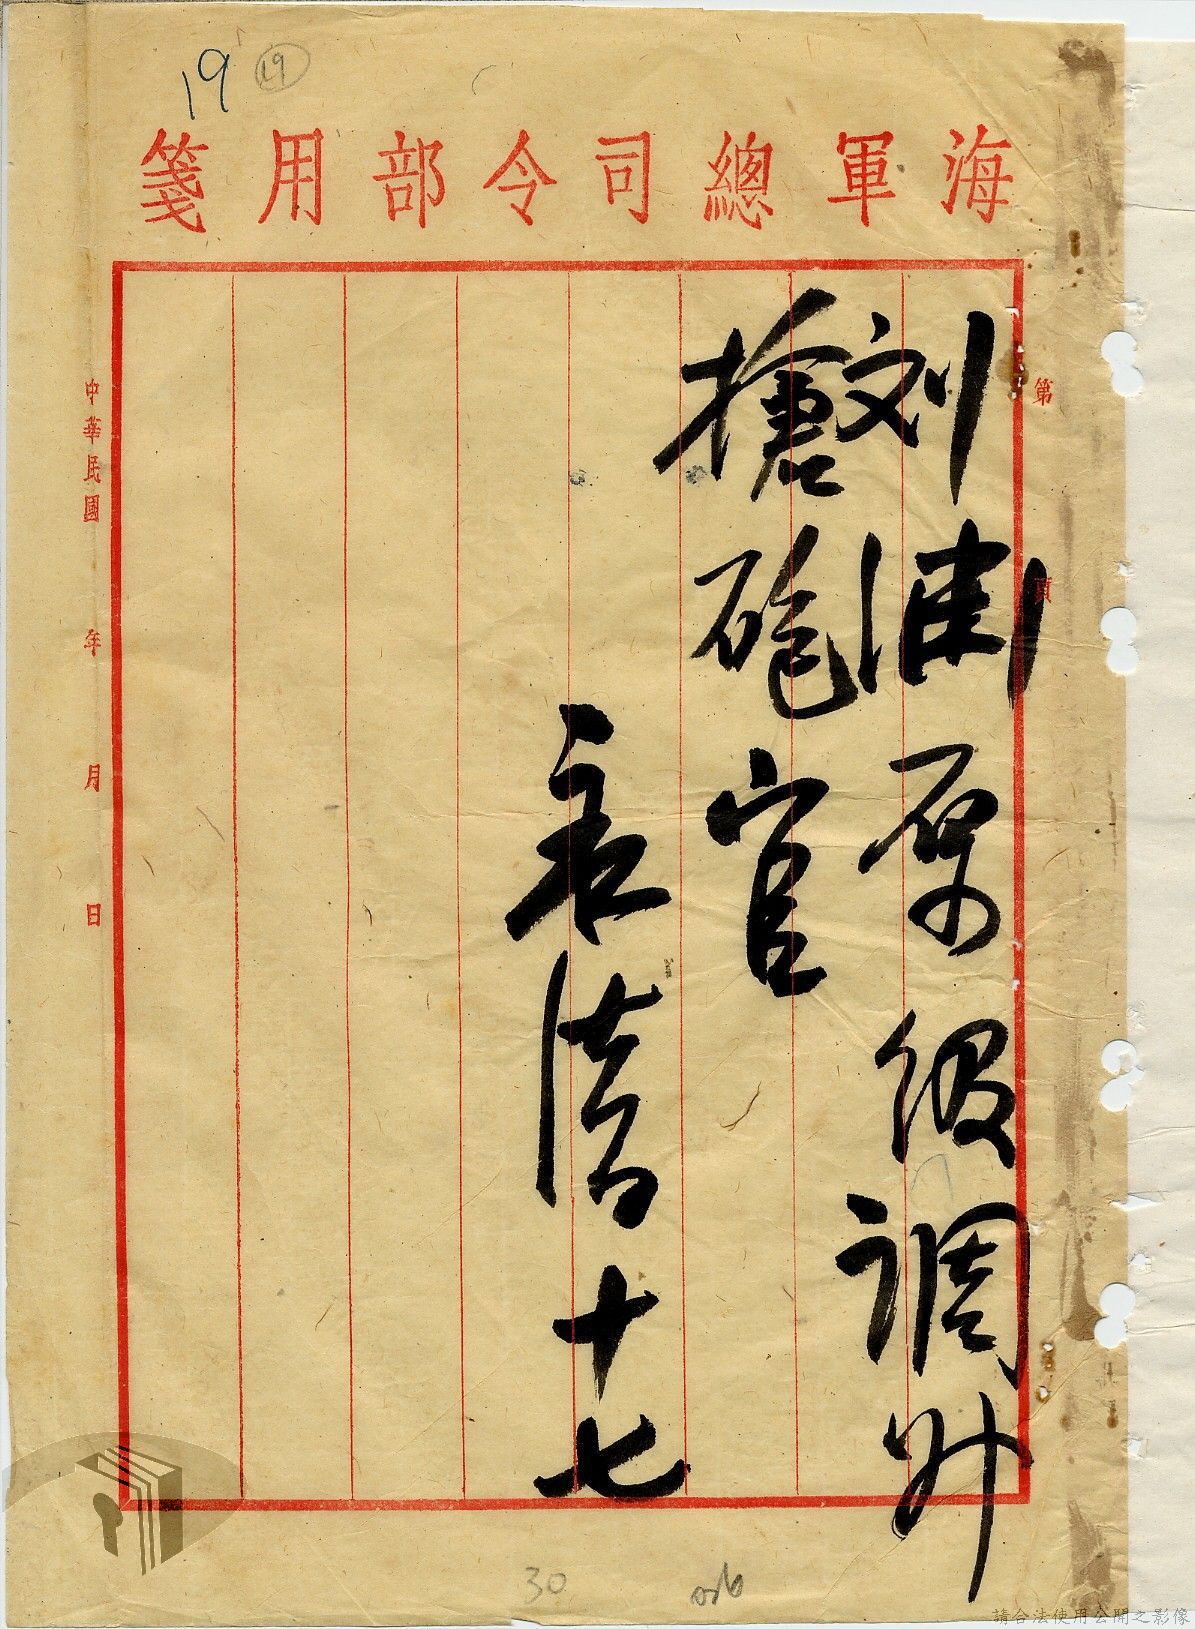 19
19
海軍總司令部用箋
第 頁
刘淵原級調升
搶砲官
永清十七
中華民國 年 月 日
30
請合法使用公開之影像